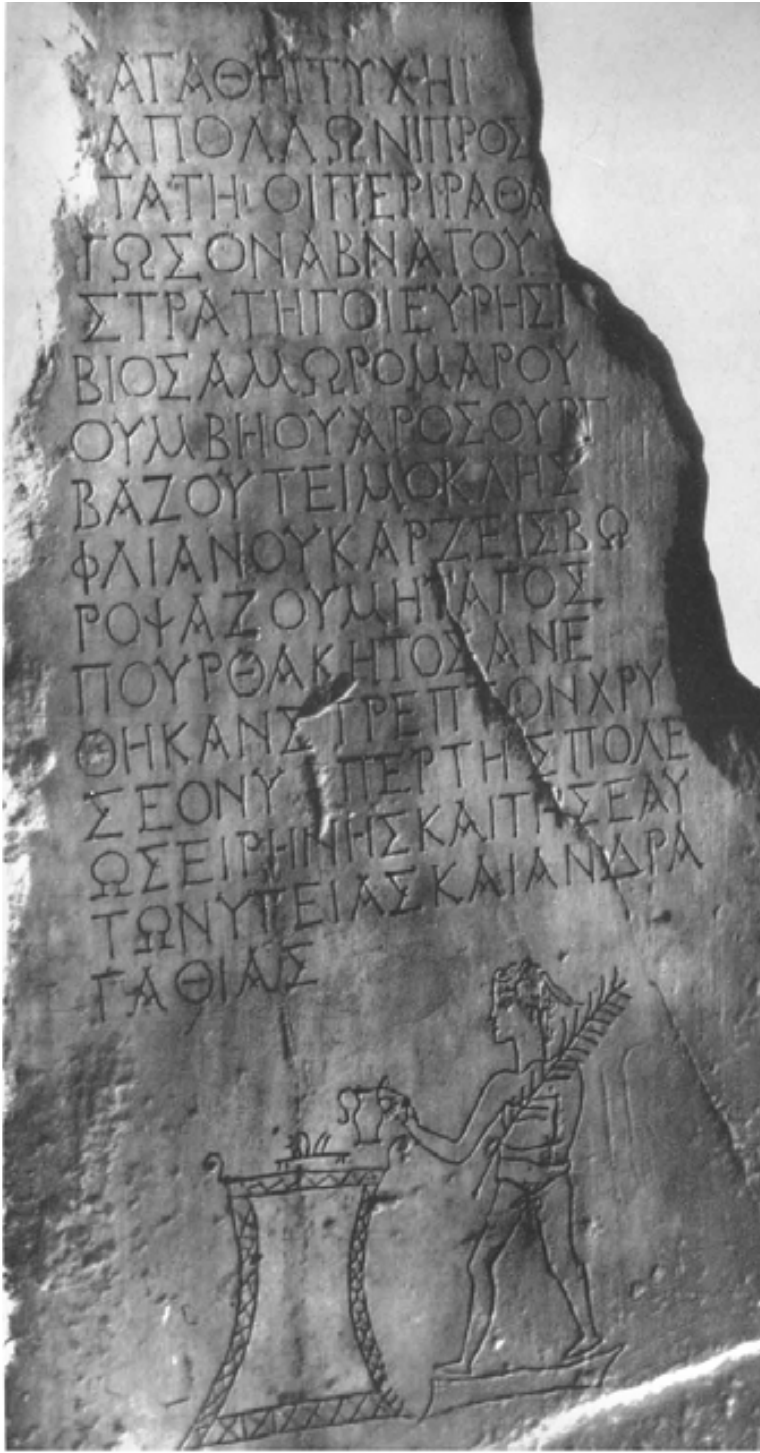 ΑΓΑΘΗΙΤΥΧΗΙ
ΑΠΟΛΛΩΝΙΠΡΟΣ
ΤΑΤΗΙΟΙΠΕΡΙΡΑΘΑ
ΓΩΣΟΝΑΒΝΑΓΟΥ
ΣΤΡΑΤΗΓΟΙΕΥΡΗΣΙ
ΒΙΟΣΑΜΩΡΟΜΑΡΟΥ
ΟΥΜΒΗΟΥΑΡΟΣΟΥΡΓ
ΒΑΖΟΥΤΕΙΜΟΚΛΗΣ
ΦΛΙΑΝΟΥΚΑΡΖΕΙΣΒΩ
ΡΟΨΑΖΟΥΜΗΠΑΓΟΣ
ΠΟΥΡΘΑΚΗΤΟΣΑΝΕ
ΘΗΚΑΝΣΤΡΕΠΤΟΝΧΡΥ
ΣΕΟΝΥΠΕΡΤΗΣΠΟΛΕ
ΩΣΕΙΡΗΝΗΣΚΑΙΤΗΣΕΑΥ
ΤΩΝΥΓΕΙΑΣΚΑΙΑΝΔΡΑ
ΓΑΘΙΑΣ